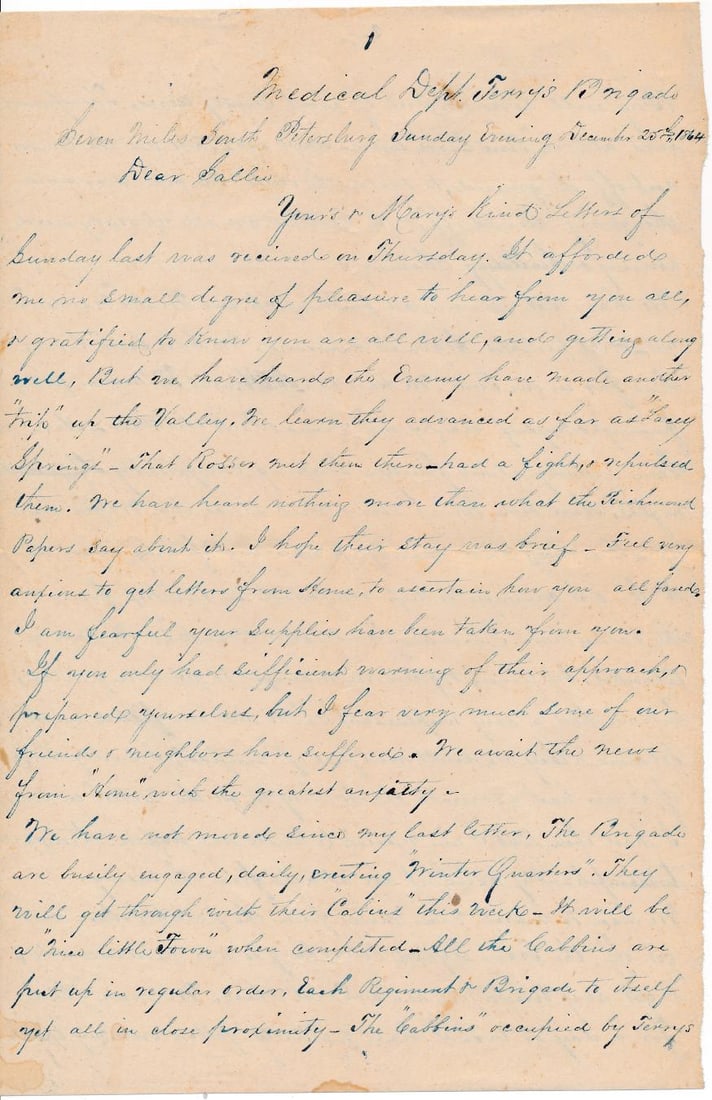 1
Medical Dept. Terry's Brigade
Seven Miles South Petersburg Sunday Evening, December 25th, 1864
Dear Sallie
Your's & Mary's Kind Letters of
Sunday last was received on Thursday. It afforded
me no small degree of pleasure to hear from you all,
& gratified to know you are all well, and getting along
well, But we have heard the Enemy have made another
"Trip" up the Valley. We learn they advanced as far as "Lacey
Springs" – That Rosser met them there – had a fight, & repulsed
them. We have heard nothing more than what the Richmond
Papers say about it. I hope their stay was brief – Feel very
anxious to get letters from Home, to ascertain how you all fared.
I am fearful your Supplies have been taken from you.
If you only had sufficient warning of their approach, &
prepared yourselves, but I fear very much some of our
friends & neighbors have suffered. We await the news
from "Home" with the greatest anxiety –
We have not moved since my last letter, The Brigade
are busily engaged, daily, erecting "Winter Quarters". They
will get through with their "Cabins" this week – It will be
a "nice little Town" when completed – All the Cabbins are
put up in regular order, Each Regiment & Brigade to itself
yet all in close proximity – The "Cabbins" occupied by Terrys